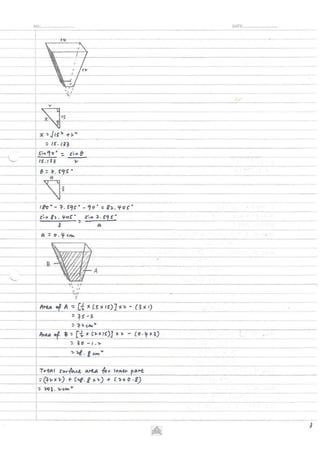 NO.
DATE:
15
x
x = √15² + 2²
= 15.133
sin 90° = sin θ
15.133 2
θ = 7.595°
a
3
180° - 7.595° - 90° = 82.405°
sin 82.405° = sin 7.595°
3 a
a = 0.4 cm
B
A
Area of A = [½ × (5 × 15)] × 2 - (3 × 1)
= 75 - 3
= 72 cm²
Area of B = [½ × (2 × 15)] × 2 - (0.4 × 3)
= 30 - 1.2
= 28.8 cm²
Total surface area for inner part
= (72 × 2) + (28.8 × 2) + (2 × 0.8)
= 203.2 cm²
3